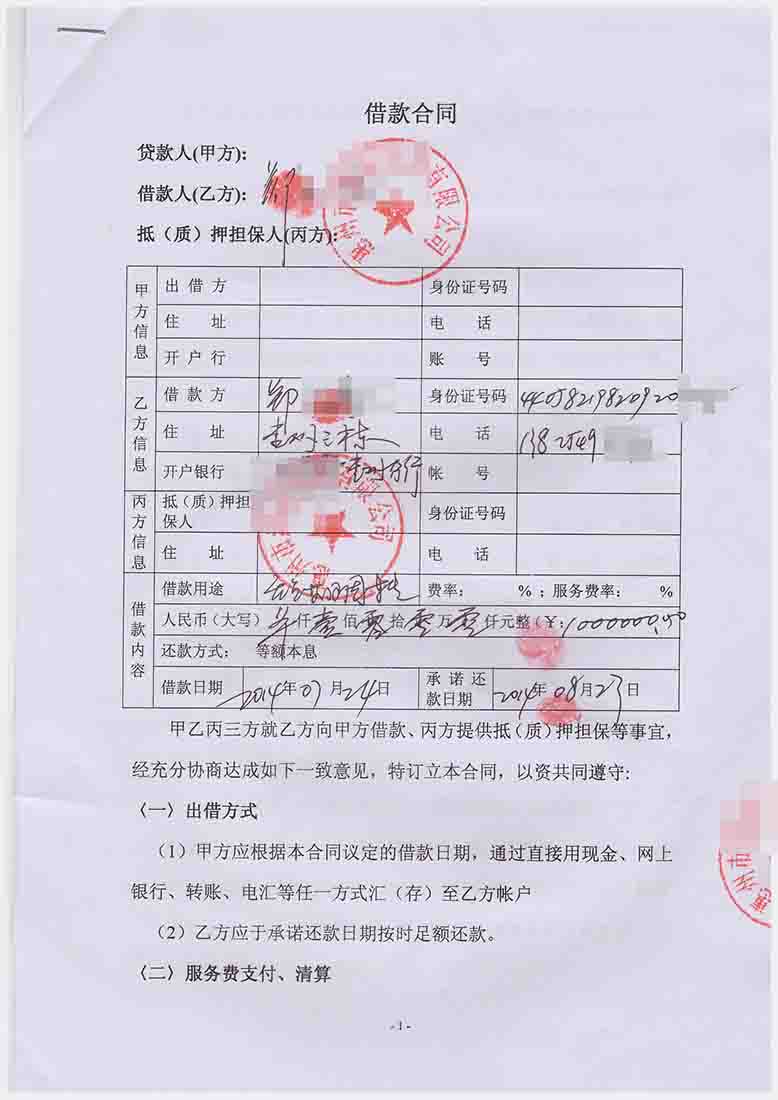 借款合同
贷款人(甲方):
借款人(乙方): 郑
抵（质）押担保人(丙方):
有限公司
惠州市
甲方信息
出借方 身份证号码
住 址 电 话
开户行 账 号
乙方信息
借款方 郑 身份证号码 44058219820920
住 址 惠州三栋 电 话 1382549
开户银行 惠州分行 帐 号
丙方信息
抵（质）押担保人 身份证号码
住 址 电 话
惠州市
公司
借款内容
借款用途 费率： %；服务费率： %
人民币（大写） 仟壹佰零拾零万零仟元整（￥：1000000.00
还款方式： 等额本息
借款日期 2014年07月24日 承诺还款日期 2014年08月23日
甲乙丙三方就乙方向甲方借款、丙方提供抵（质）押担保等事宜，
经充分协商达成如下一致意见，特订立本合同，以资共同遵守:
〈一〉出借方式
（1）甲方应根据本合同议定的借款日期，通过直接用现金、网上
银行、转账、电汇等任一方式汇（存）至乙方帐户
（2）乙方应于承诺还款日期按时足额还款。
惠州市
〈二〉服务费支付、清算
- 1 -